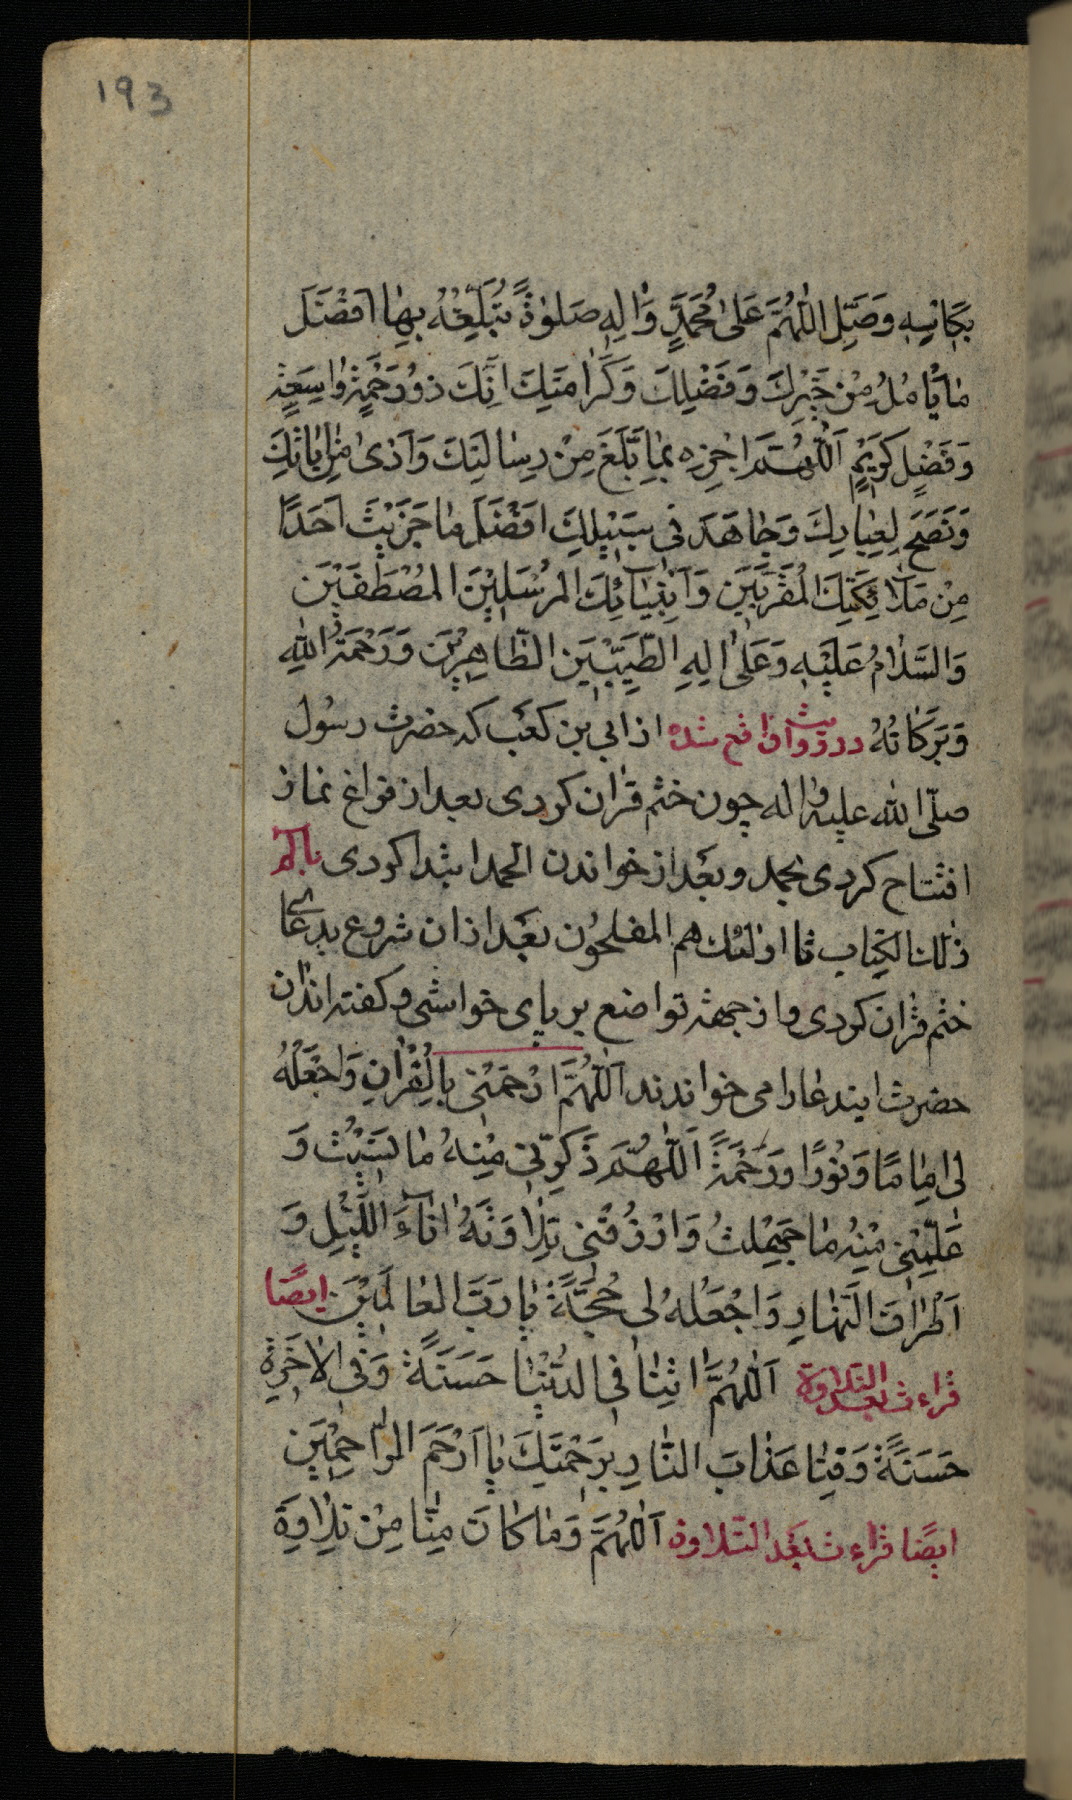 193
بِكَاْسِهِ وَصَلِّ اللّٰهُمَّ عَلىٰ مُحَمَّدٍ وَاٰلِهِ صَلوٰةً تُبَلِّغُهُ بِهٰا اَفْضَلَ
مٰا يَاْمُلُ مِنْ خَيْرِكَ وَفَضْلِكَ وَكَرٰامَتِكَ اِنَّكَ ذُو رَحْمَةٍ وٰاسِعَةٍ
وَفَضْلٍ كَرِيْمٍ اَللّٰهُمَّ اجْزِهِ بِمٰا بَلَّغَ مِنْ رِسٰالَتِكَ وَاَدّٰى مِنْ اٰيٰاتِكَ
وَنَصَحَ لِعِبٰادِكَ وَجٰاهَدَ فى سَبِيْلِكَ اَفْضَلَ مٰا جَزَيْتَ اَحَدًا
مِنْ مَلٰآئِكَتِكَ الْمُقَرَّبِيْنَ وَاَنْبِيٰآئِكَ الْمُرْسَلِيْنَ الْمُصْطَفَيْنَ
وَالسَّلٰامُ عَلَيْهِ وَعَلىٰ اٰلِهِ الطَّيِّبِيْنَ الطّٰاهِرِيْنَ وَرَحْمَةُ اللهِ
وَبَرَكٰاتُهُ در روايت واقع شده از ابى بن كعب كه حضرت رسول
صلّى الله عليه واٰله چون ختم قرٰان كردى بعد از فراغ نماز
افتتاح كردى بحمد وبعد از خواندن الحمد ابتدا كردى باالم
ذٰلك الكتاب تا اولئك هم المفلحون بعد ازان شروع بدعاى
ختم قرٰان كردى واز جهة تواضع برپاى خواستى وكفته اند ان
حضرت ايندعا را مى خواندند اَللّٰهُمَّ ارْحَمْنى بِالْقُرْاٰنِ وَاجْعَلْهُ
لى اِمٰامًا وَنُوْرًا وَرَحْمَةً اَللّٰهُمَّ ذَكِّرْنى مِنْهُ مٰا نَسِيْتُ وَ
عَلِّمْنى مِنْهُ مٰا جَهِلْتُ وَارْزُقْنى تِلٰاوَتَهُ اٰنٰآءَ اللَّيْلِ وَ
اَطْرٰافَ النَّهٰارِ وَاجْعَلْهُ لى حُجَّةً يٰا رَبَّ الْعٰالَمِيْنَ ايضًا
قراءت بعد التلاوة اَللّٰهُمَّ اٰتِنٰا فى الدُّنْيٰا حَسَنَةً وَفى الْاٰخِرَةِ
حَسَنَةً وَقِنٰا عَذٰابَ النّٰارِ بِرَحْمَتِكَ يٰا اَرْحَمَ الرّٰاحِمِيْنَ
ايضًا قراءت بعد التّلاوة اَللّٰهُمَّ وَمٰا كٰانَ مِنّٰا مِنْ تِلٰاوَةٍ